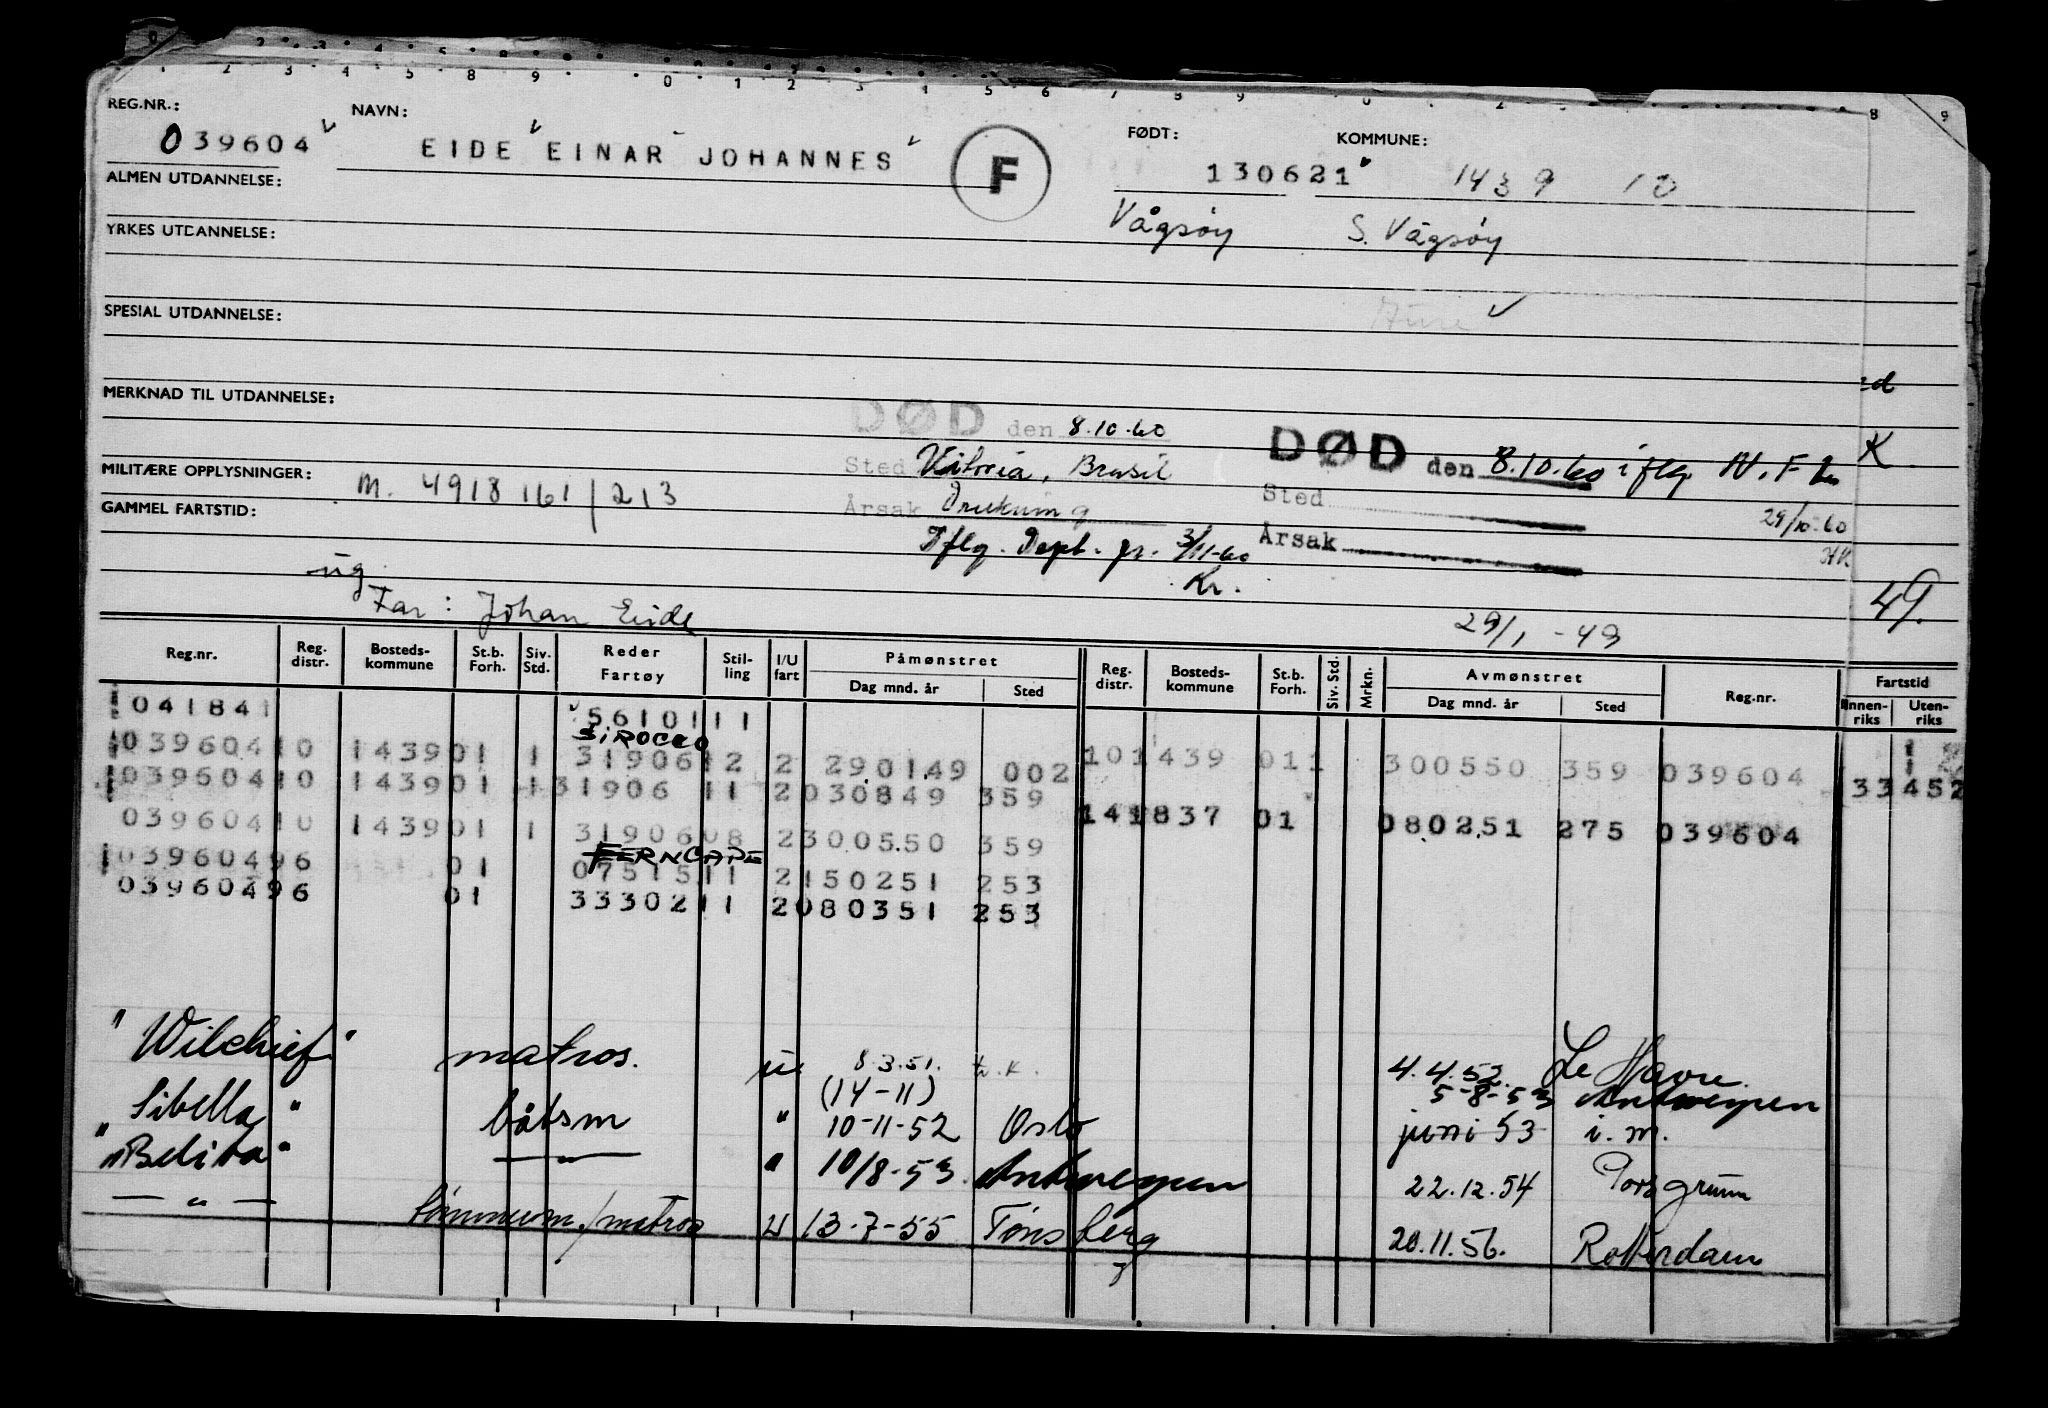 REG.NR.: NAVN: FØDT: KOMMUNE:
039604 EIDE EINAR JOHANNES F 130621 1439 10
ALMEN UTDANNELSE:
Vågsøy S. Vågsøy
YRKES UTDANNELSE:
SPESIAL UTDANNELSE:
MERKNAD TIL UTDANNELSE:
DØD den 8.10.60
DØD den 8.10.60 iflg N.F.
Sted Vitoria, Brasil
Sted
MILITÆRE OPPLYSNINGER: M. 4918 161/213
29/10-60
HK
Årsak Drukning
Årsak
GAMMEL FARTSTID:
Iflg. Dept. gr. 3/11-60
Kr.
ug
Far: Johan Eide
29/1-49
49.
Reg.nr. Reg. distr. Bosteds-kommune St.b. Forh. Siv. Std. Reder Fartøy Stil-ling I/U fart Påmønstret Dag mnd. år Sted Reg. distr. Bosteds-kommune St.b. Forh. Siv. Std. Mrkn. Avmønstret Dag mnd. år Sted Reg.nr. Fartstid Innen-riks Uten-riks
041841 5610111
SIROCCO
039604 10 1439 01 1 31906 12 2 290149 002 10 1439 01 1 300550 359 039604
039604 10 1439 01 1 31906 11 2 030849 359 33 452
039604 10 1439 01 1 31906 08 2 300550 359 14 1837 01 080251 275 039604
FERNCAPE
039604 96 01 07515 11 2 150251 253
039604 96 01 33302 11 2 080351 253
"Wilchief" matros. u. 8.3.51. 4.4.52. Le Havre.
(14-11) 5-8-53 Antwerpen
Sibella " båtsm " 10-11-52 Oslo juni 53 i.m.
"Belita" — " — " 10/8-53 Antwerpen 22.12.54 Porsgrunn
— " — tømmerm./matros u 13-7-55 Tønsberg 20.11.56. Rotterdam